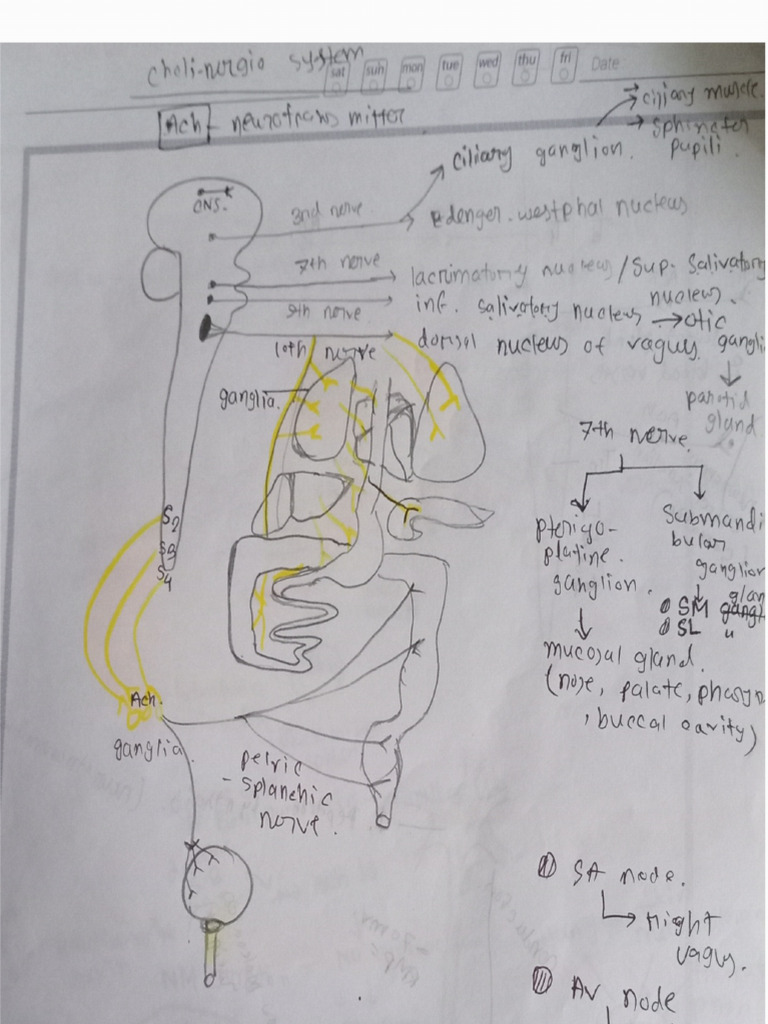 Cholinergic system
sat sun mon tue wed thu fri Date
Ach - neurotransmitter
→ ciliary muscle.
→ sphincter pupili.
ciliary ganglion.
CNS.
3nd nerve
Edenger-westphal nucleus
7th nerve
lacrimatory nucleus / Sup. Salivatory nucleus.
9th nerve
inf. salivatory nucleus → otic
10th nerve
dorsal nucleus of vagus. gangli
ganglia.
parotid
gland
7th nerve.
pterigo-
platine.
ganglion.
Submandi
bular
ganglion
SM gland
SL "
mucosal gland.
(nose, palate, pharyn
, buccal cavity)
S2
S3
S4
Ach.
ganglia
pelvic
- splanchic
nerve.
SA node.
right
vagus.
AV node